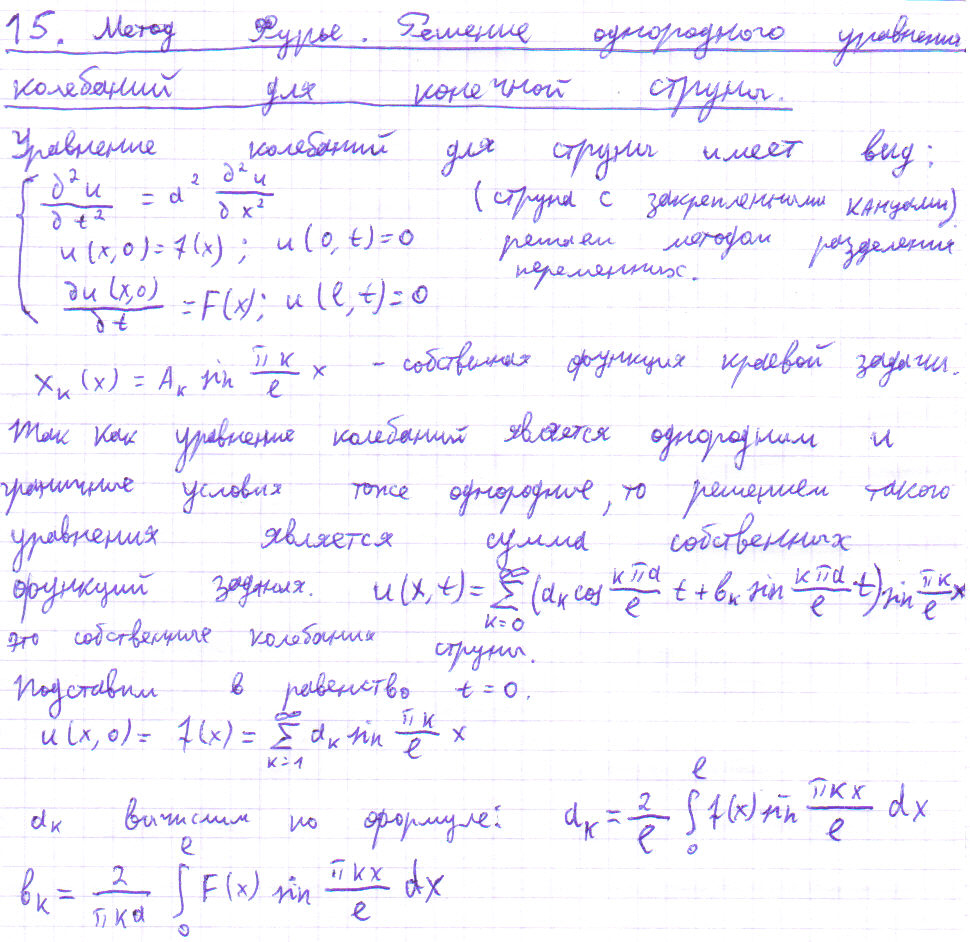 15. Метод Фурье. Решение однородного уравнения
колебаний для конечной струны.
Уравнение колебаний для струны имеет вид:
∂²u/∂t² = a² ∂²u/∂x² (струна с закрепленными канцами)
u(x,0)=f(x); u(0,t)=0 решаем методом разделения
переменных.
∂u(x,0)/∂t = F(x); u(l,t)=0
X_k(x) = A_k sin πk/l x - собственная функция краевой задачи.
Так как уравнение колебаний является однородным и
граничные условия тоже однородные, то решением такого
уравнения является сумма собственных
функций задачи. u(x,t) = ∑_{k=0}^{∞} (a_k cos kπa/l t + b_k sin kπa/l t) sin πk/l x
это собственные колебания струны.
Подставим в равенство t=0.
u(x,0) = f(x) = ∑_{k=1}^{∞} a_k sin πk/l x
a_k вычислим по формуле: a_k = 2/l ∫_0^l f(x) sin πkx/l dx
b_k = 2/πka ∫_0^l F(x) sin πkx/l dx